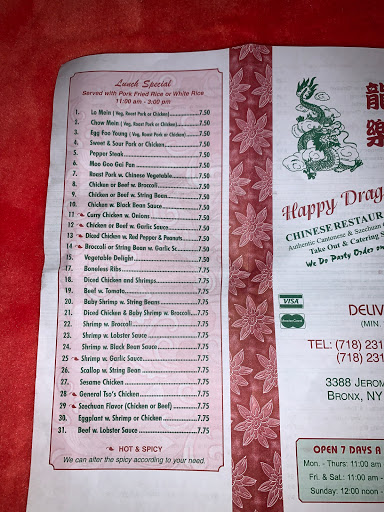 Lunch Special
Served with Pork Fried Rice or White Rice
11:00 am - 3:00 pm
1. Lo Mein ( Veg, Roast Pork or Chicken) 7.50
2. Chow Mein ( Veg, Roast Pork or Chicken) 7.50
3. Egg Foo Young ( Veg, Roast Pork or Chicken) 7.50
4. Sweet & Sour Pork or Chicken 7.50
5. Pepper Steak 7.50
6. Moo Goo Gai Pan 7.50
7. Roast Pork w. Chinese Vegetable 7.50
8. Chicken or Beef w. Broccoli 7.50
9. Chicken or Beef w. String Bean 7.50
10. Chicken w. Black Bean Sauce 7.50
11. Curry Chicken w. Onions 7.50
12. Chicken or Beef w. Garlic Sauce 7.50
13. Diced Chicken w. Red Pepper & Peanuts 7.50
14. Broccoli or String Bean w. Garlic Sc 7.50
15. Vegetable Delight 7.50
17. Boneless Ribs 7.75
18. Diced Chicken and Shrimps 7.75
19. Beef w. Tomato 7.75
20. Baby Shrimp w. String Beans 7.75
21. Diced Chicken & Baby Shrimp w. Broccoli 7.75
22. Shrimp w. Broccoli 7.75
23. Shrimp w. Lobster Sauce 7.75
24. Shrimp w. Black Bean Sauce 7.75
25. Shrimp w. Garlic Sauce 7.75
26. Scallop w. String Bean 7.75
27. Sesame Chicken 7.75
28. General Tso's Chicken 7.75
29. Szechuan Flavor (Chicken or Beef) 7.75
30. Eggplant w. Shrimp or Chicken 7.75
31. Beef w. Lobster Sauce 7.75
HOT & SPICY
We can alter the spicy according to your need.
龍
Happy Drag
CHINESE RESTAUR
Authentic Cantonese & Szechuan
Take Out & Catering S
We Do Party Order
VISA
MasterCard
DELIV
(MIN.
TEL: (718) 231
(718) 231
3388 JEROM
BRONX, NY
OPEN 7 DAYS A
Mon. - Thurs: 11:00 am
Fri. & Sat.: 11:00 am -
Sunday: 12:00 noon -